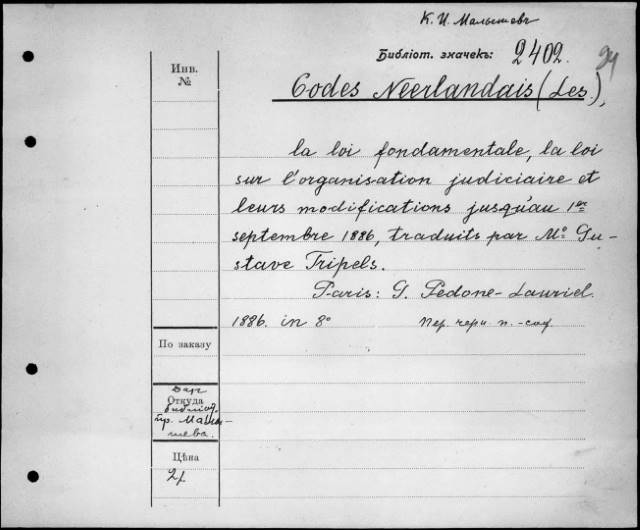 К. И. Малышевъ
Библіот. значекъ: 2402. 94
Инв.
№
Codes Néerlandais (Les.),
la loi fondamentale, la loi
sur l'organisation judiciaire et
leurs modifications jusqu'au 1er
septembre 1886, traduits par Mo Gu-
stave Tripels.
Paris: G. Pédone-Lauriel.
1886. in 8°
Пер. черн. п.-соф.
По заказу
Дар
Откуда
библіот.
пр. Малы-
шева.
Цѣна
2р